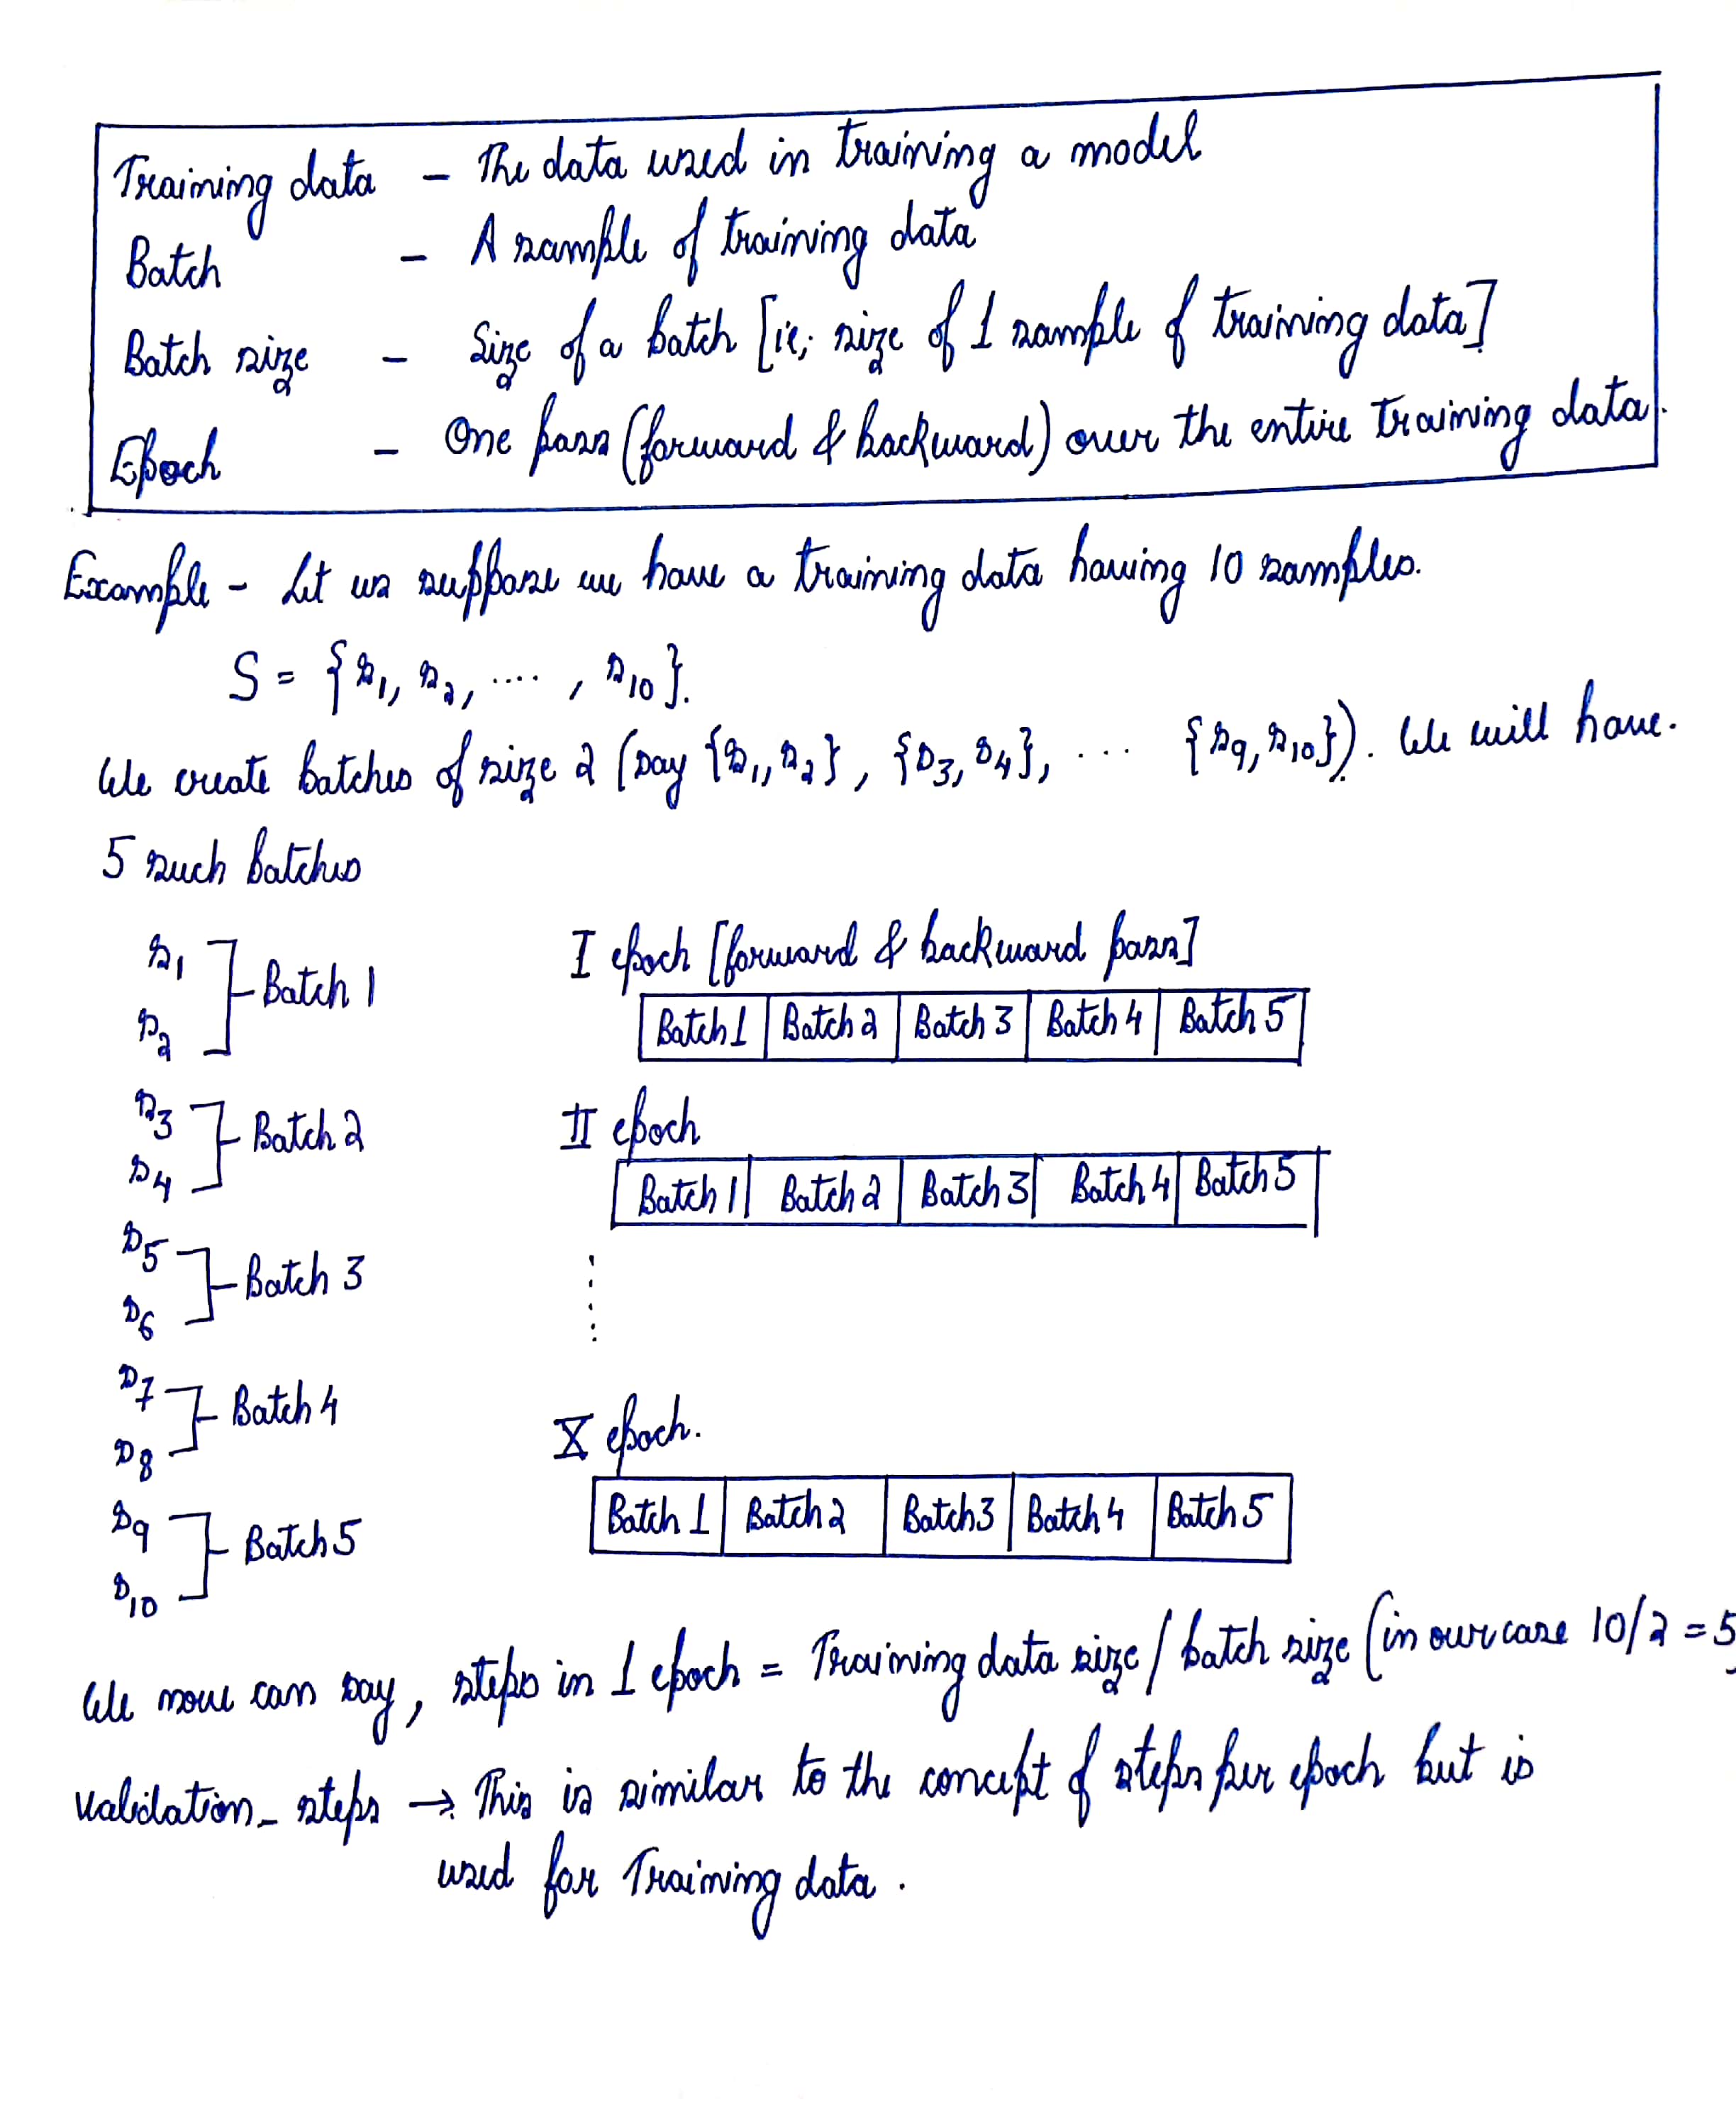 Training data - The data used in training a model
Batch - A sample of training data
Batch size - Size of a batch [ie; size of 1 sample of training data]
Epoch - One pass (forward & backward) over the entire training data.
Example - Let us suppose we have a training data having 10 samples.
S = {s1, s2, .... , s10}.
We create batches of size 2 (say {s1, s2}, {s3, s4}, ... {s9, s10}). We will have.
5 such batches
s1
s2
Batch 1
s3
s4
Batch 2
s5
s6
Batch 3
s7
s8
Batch 4
s9
s10
Batch 5
I epoch [forward & backward pass]
Batch 1 Batch 2 Batch 3 Batch 4 Batch 5
II epoch
Batch 1 Batch 2 Batch 3 Batch 4 Batch 5
X epoch.
Batch 1 Batch 2 Batch 3 Batch 4 Batch 5
We now can say, steps in 1 epoch = Training data size / batch size (in our case 10/2 = 5)
validation_steps → This is similar to the concept of steps per epoch but is
used for Training data.